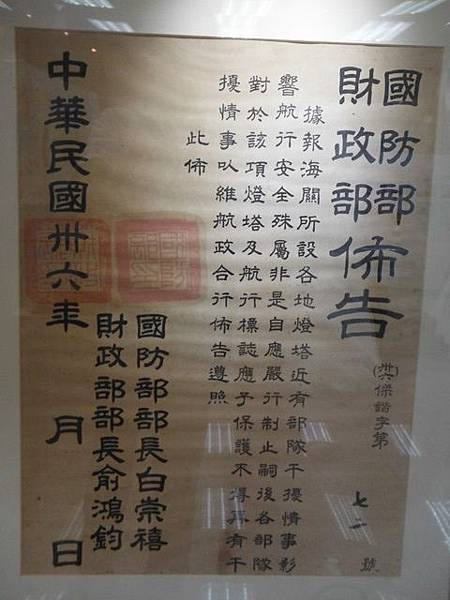 國防部
財政部
佈告
(卅六)傑諧字第 七一 號
據報海關所設各地燈塔近有部隊干擾情事影
響航行安全殊屬非是自應嚴行制止嗣後各部隊
對於該項燈塔及航行標誌應予保護不得再有干
擾情事以維航政合行佈告遵照
此佈
國防部部長白崇禧
財政部部長俞鴻鈞
中華民國卅六年 月 日